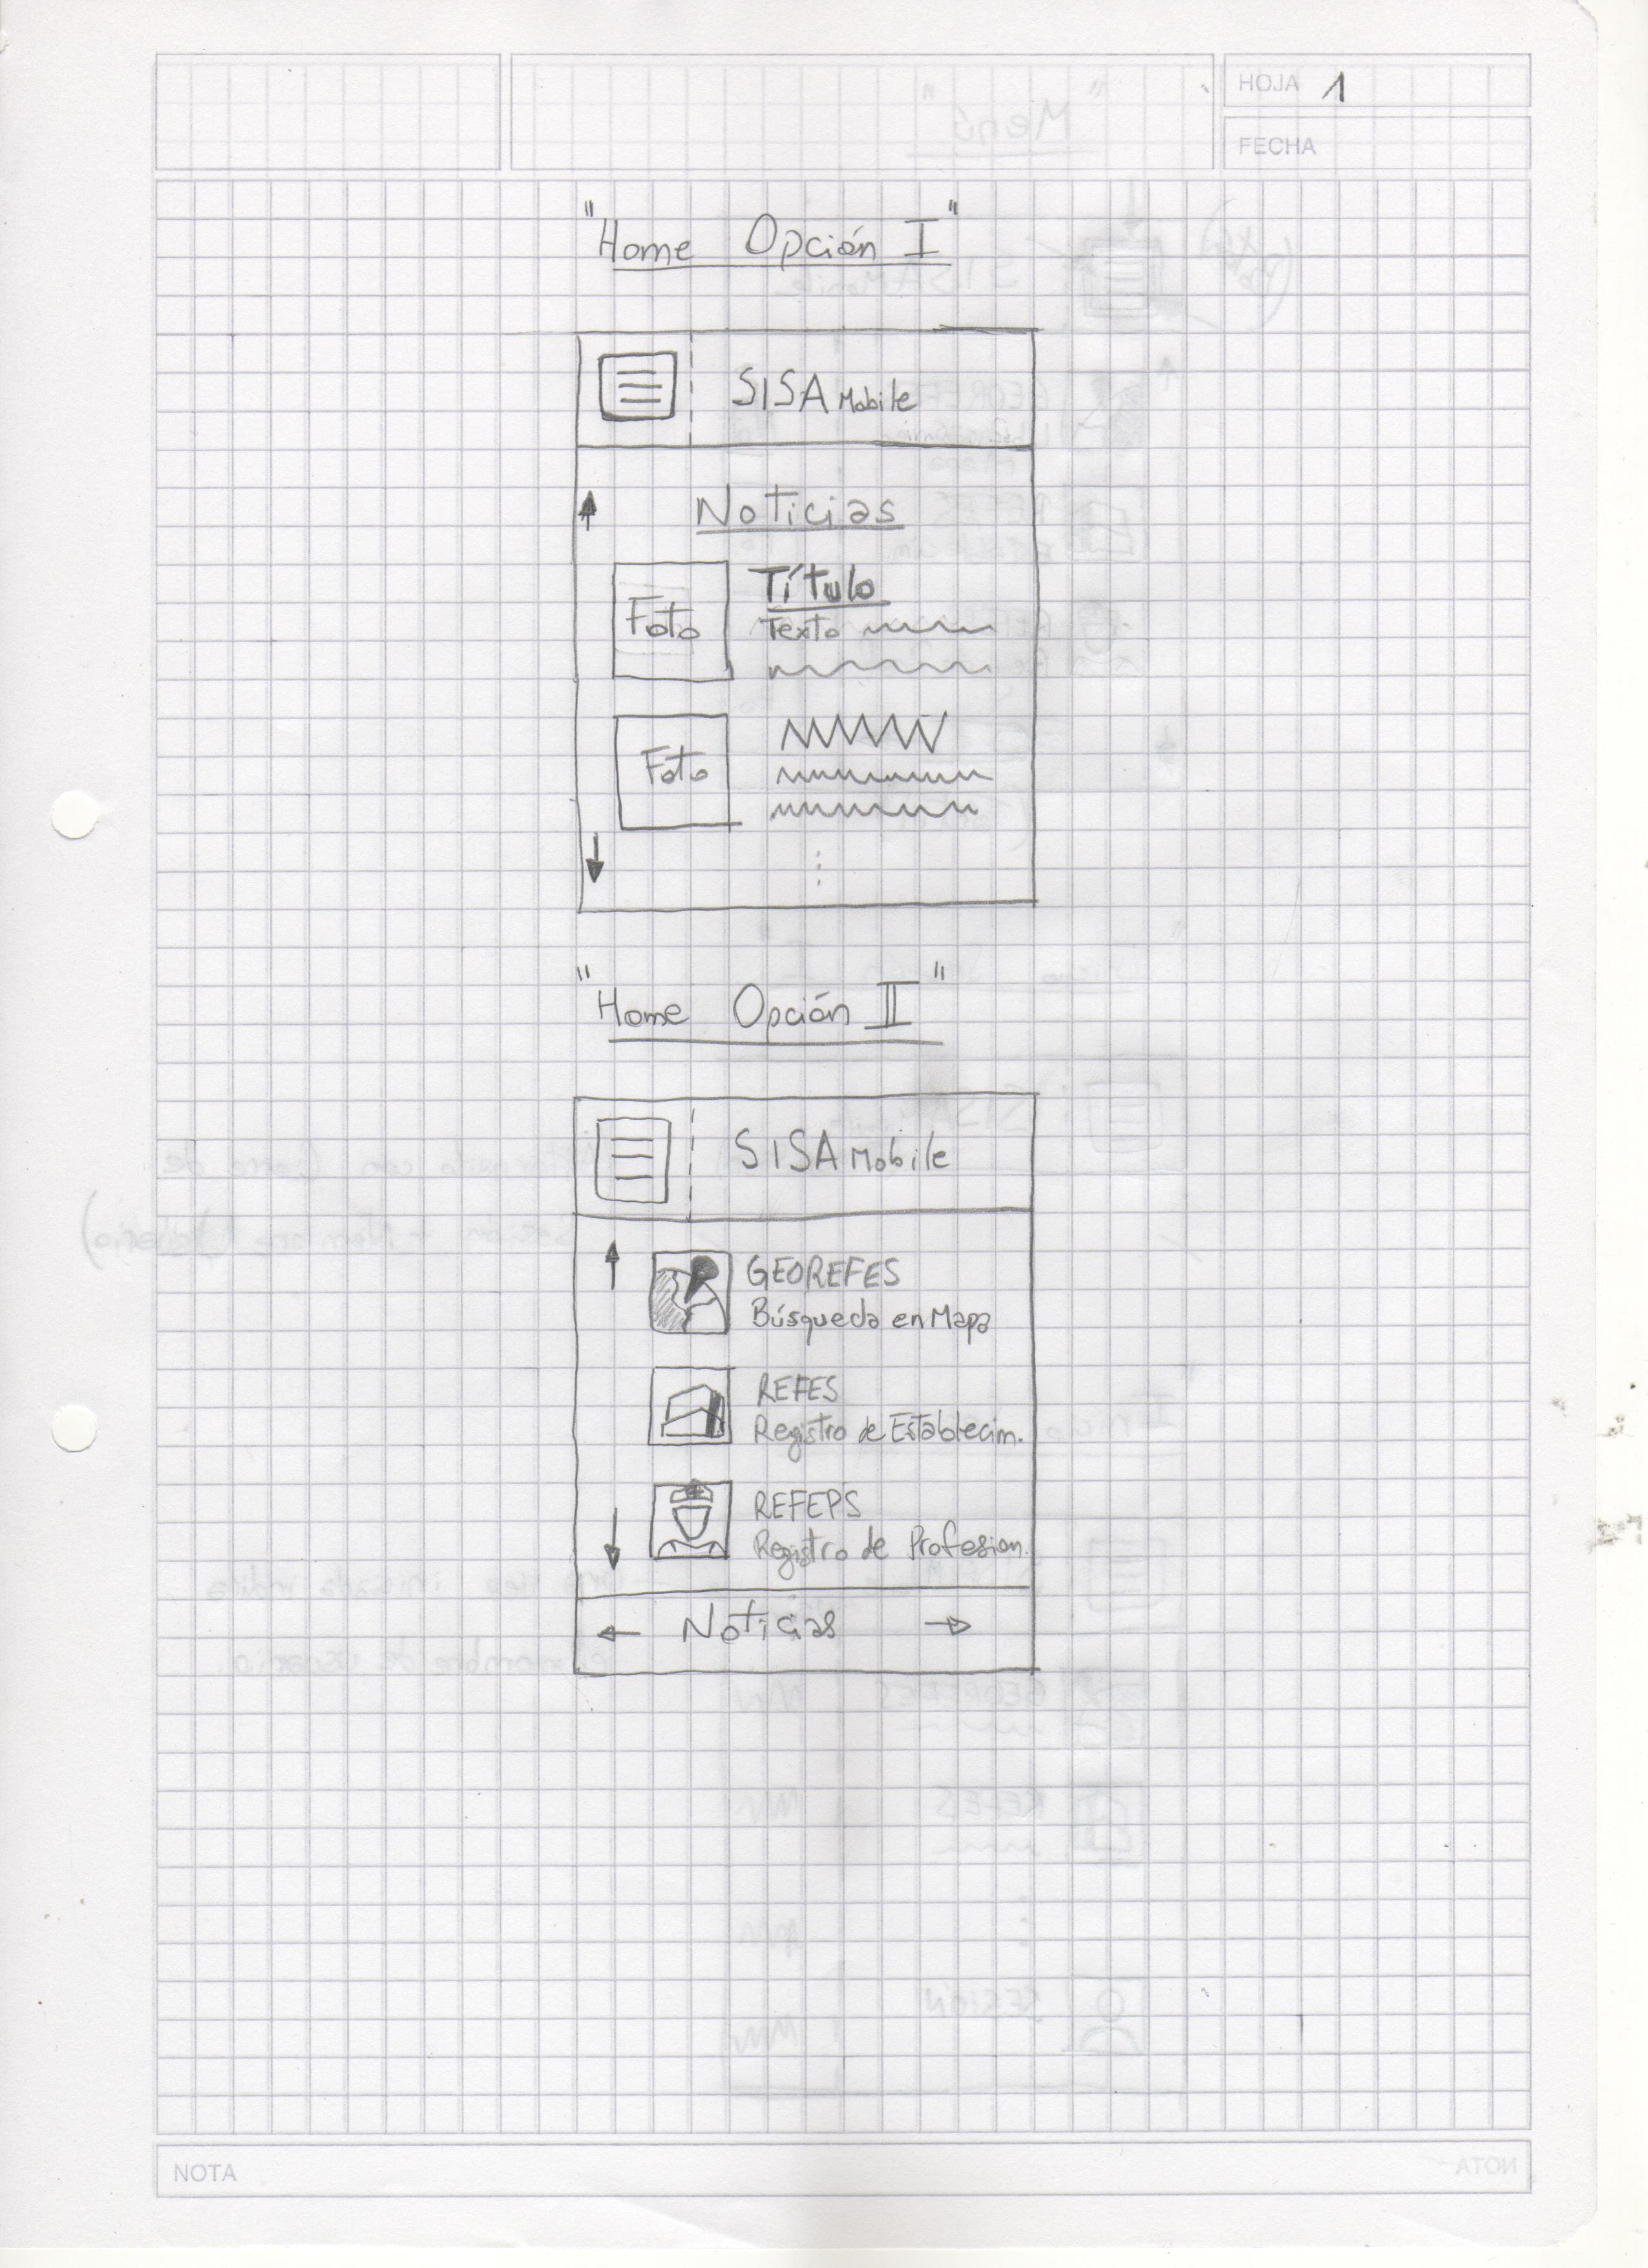 HOJA 1
FECHA
"Home Opción I"
SISA Mobile
Noticias
Foto
Título
Texto
Foto
"Home Opción II"
SISA Mobile
GEOREFES
Búsqueda en Mapa
REFES
Registro de Establecim.
REFEPS
Registro de Profesion.
← Noticias →
NOTA